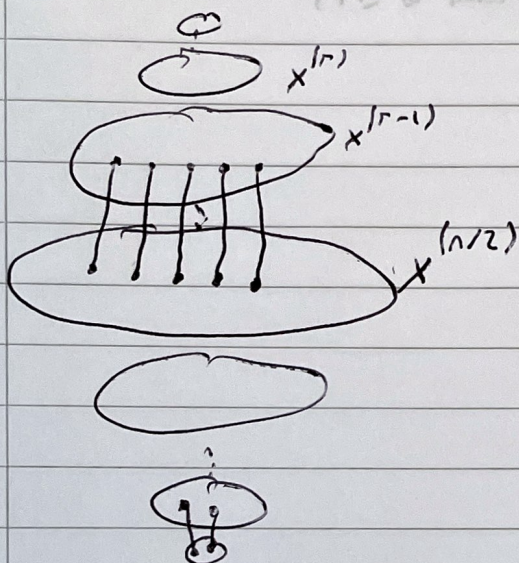 X^(r)
X^(r-1)
X^(n/2)